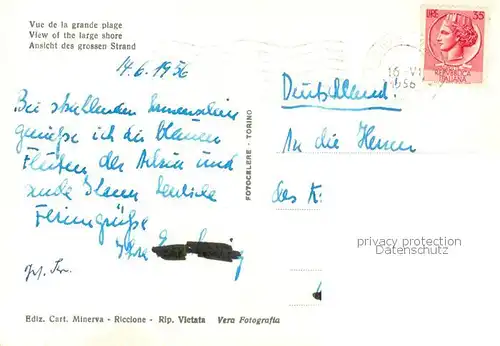 Vue de la grande plage
View of the large shore
Ansicht des grossen Strand
14.6.1956
Bei strahlendem Sonnenschein
genieße ich die blauen
Fluten der Adria und
sende Ihnen herzliche
Feriengrüße
Ihre
LIRE 35
REPVBBLICA
ITALIANA
16 VI
1956
Deutschland.
An die Herren
des K
FOTOCELERE - TORINO
privacy protection
Ediz. Cart. Minerva - Riccione - Rip. Vietata Vera Fotografia